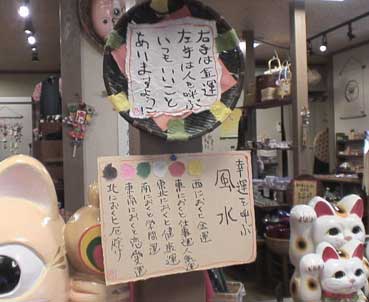 右手は金運
左手は人を呼ぶ
いつもいいこと
ありますように
幸運を呼ぶ
風水
西におくと金運
東におくと仕事運・元気運
東北におくと健康運
南におくと学問運
東南におくと恋愛運
北におくと厄除け